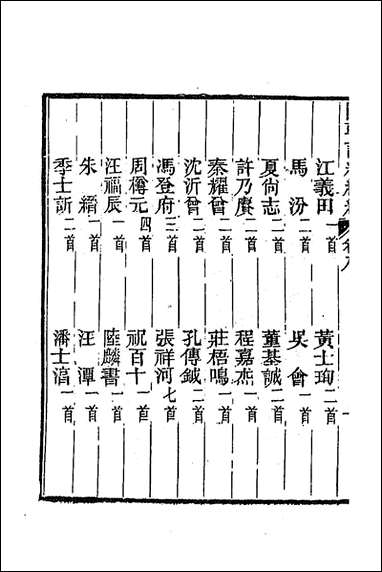 江義田一首 黃士珣二首
馬汾二首 吳會一首
夏尙志二首 董基誠二首
許乃賡二首 程嘉杰一首
秦耀曾二首 莊梧鳴一首
沈沂曾二首 孔傳鉞二首
馮登府三首 張祥河七首
周樽元四首 祝百十一首
汪福辰一首 陸麟書一首
朱繒一首 汪潭一首
季士訢二首 潘士滈一首